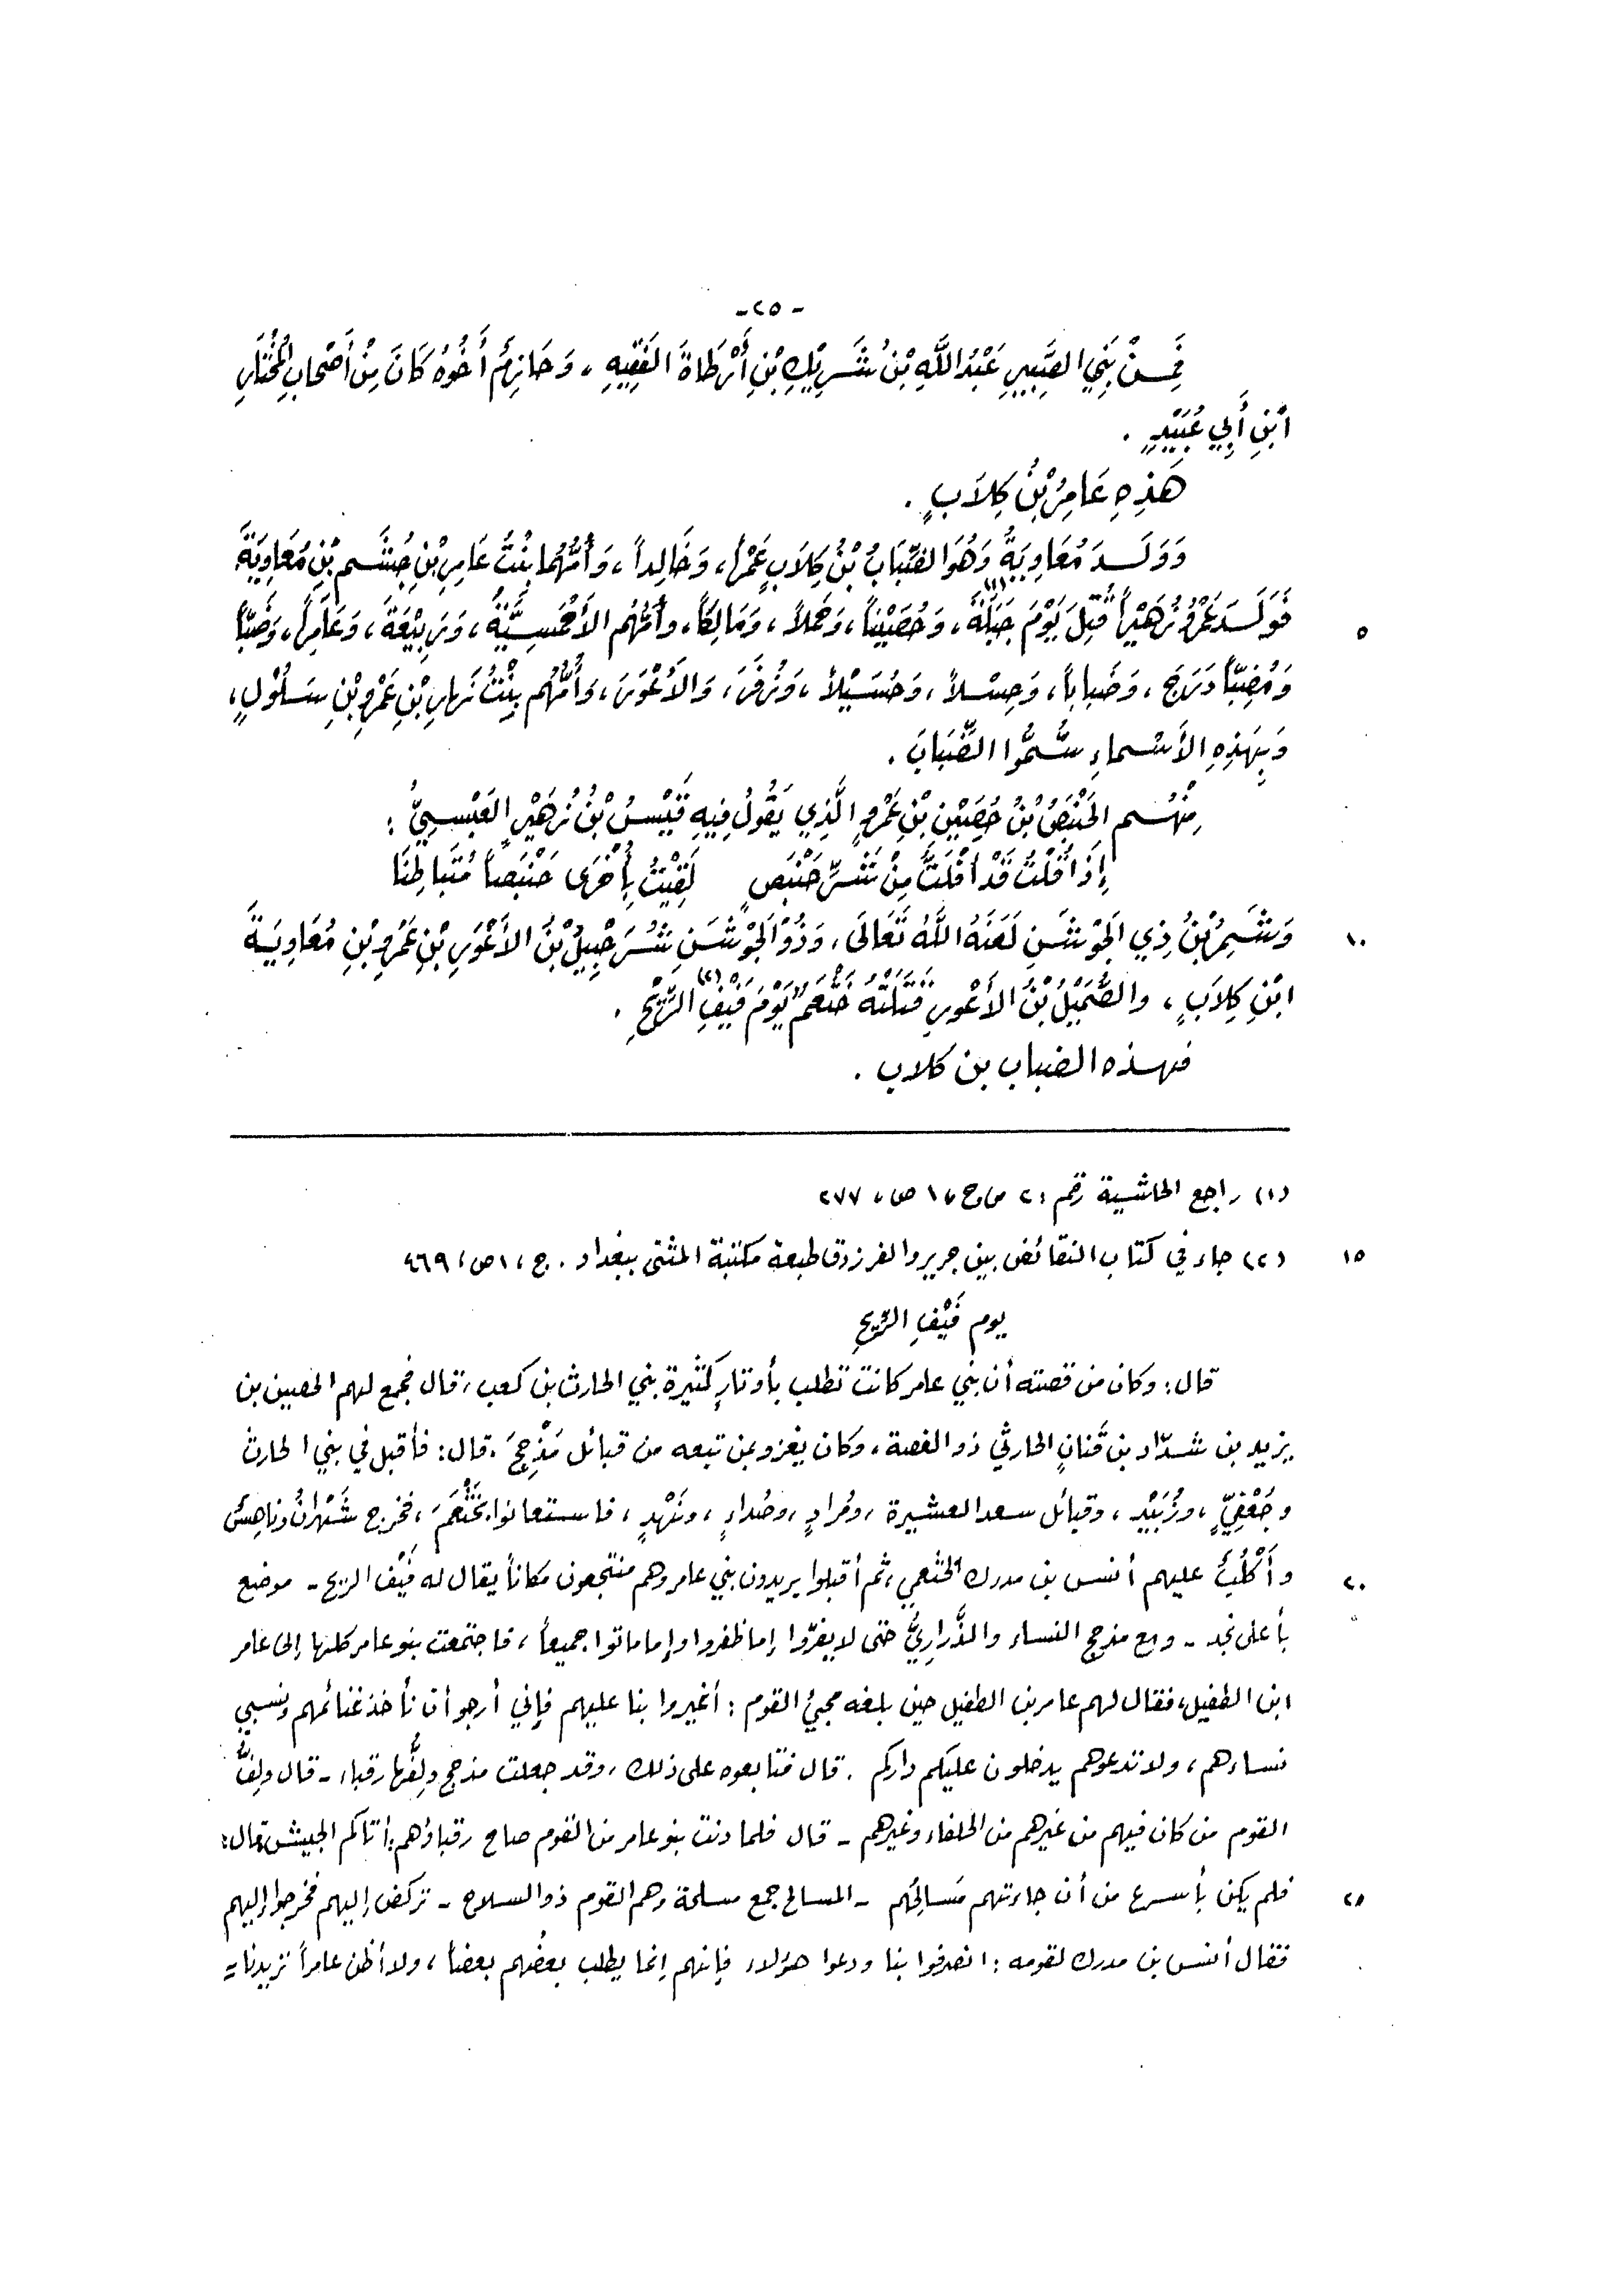 -٢٥-
فَمِنْ بَنِي الصَّبِيرِ عَبْدُ اللَّهِ بْنُ شَرِيْكِ بْنِ أَرْطَاةَ الفَقِيهِ، وَحَازِمٌ أَخُوهُ كَانَ مِنْ أَصْحَابِ الْمُخْتَارِ
ابْنِ أَبِي عُبَيْدٍ .
هَذِهِ عَامِرُ بْنُ كِلاَبٍ .
وَوَلَدَ مُعَاوِيَةُ وَهُوَ الضِّبَابُ بْنُ كِلاَبٍ عَمْراً، وَخَالِداً، وَأُمُّهُما بِنْتُ عَامِرِ بْنِ جُشَمِ بْنِ مُعَاوِيَةَ
٥ فَوَلَدَ عَمْرٌو زُهَيْراً قُتِلَ يَوْمَ جَبَلَةَ(١)، وَحُصَيْناً، وَحَمَلاً، وَمَالِكاً، وأُمُّهُم الأَحْمَسِيَّةُ، وَرَبِيْعَةَ، وَعَامِراً، وَضَبّاً
وَمُضِبّاً دَرَجَ، وَضَبَاباً، وَحِسْلاً، وَحُسَيْلاً، وَزُفَرَ، وَالأَعْوَرَ، وَأُمُّهُم بِنْتُ نَهارِ بْنِ عَمْرِو بْنِ سَلُوْلٍ،
وَبِهَذِهِ الأَسْماءِ سُمُّوا الضِّبَابَ .
مِنْهُم الحَنْبَصُ بْنُ حُصَيْنِ بْنِ عَمْرٍو الَّذِي يَقُولُ فِيهِ قَيْسُ بْنُ زُهَيْرٍ العَبْسِيُّ :
إِذَا قُلْتُ قَدْ أَفْلَتُّ مِنْ شَرِّ حَنْبَصٍ لَقِيْتُ بِأُخْرَى حَنْبَصاً مُتَبَاطِنَا
١٠ وَشَمِرُ بْنُ ذِي الجَوْشَنِ لَعَنَهُ اللَّهُ تَعَالَى، وَذُو الجَوْشَنِ شُرَحْبِيلُ بْنُ الأَعْوَرِ بْنِ عَمْرِو بْنِ مُعَاوِيَةَ
ابْنِ كِلاَبٍ، والصُّمَيْلُ بْنُ الأَعْورِ قَتَلَتْهُ خَثْعَمُ يَوْمَ فَيْفِ الرِّيْحِ(٢) .
فهذه الضباب بن كلاب .
(١) راجع الحاشية رقم: ٢ من ج، ١ ص، ٢٧٧
١٥ (٢) جاء في كتاب النقائض بين جرير والفرزدق طبعة مكتبة المثنى ببغداد . ج، ١ ص، ٤٦٩
يوم فَيْفِ الرِّيحِ
قال: وكان من قصته أن بني عامر كانت تطلب بأوتارٍ كثيرة بني الحارث بن كعب، قال فجمع لهم الحصين بن
يزيد بن شدّاد بن قَنانٍ الحارثي ذو الغصة، وكان يغزو بمن تبعه من قبائل مَذْحِجَ. قال: فأقبل في بني الحارث
وجُعْفِيٍّ، وزُبَيْدٍ، وقبائل سعد العشيرة، ومُرادٍ، وصُداءٍ، ونَهْدٍ، فاستعانوا بخَثْعَمَ، فخرج شَهْرانُ وناهِسُ
٢٠ وأَكْلُبُ عليهم أنس بن مدرك الخثعمي، ثم أقبلوا يريدون بني عامر وهم منتجعون مكاناً يقال له فَيْف الريح - موضع
بأعلى نجد - ومع مذحج النساء والذَّرارِيُّ حتى لا يفرّوا إما ظفروا وإما ماتوا جميعاً، فاجتمعت بنو عامر كلها إلى عامر
ابن الطفيل، فقال لهم عامر بن الطفيل حين بلغه مجيُ القوم : أغيروا بنا عليهم فإني أرجو أن نأخذ غنائمهم ونسبي
نساءهم، ولا تدعوهم يدخلون عليكم داركم . قال فتابعوه على ذلك، وقد جعلت مذحج ولِفُّها رقباء - قال ولِفُّ
القوم من كان فيهم من غيرهم من الحلفاء وغيرهم - قال فلما دنت بنو عامر من القوم صاح رقباؤهم: أتاكم الجيش قال:
٢٥ فلم يكن بأسرع من أن جاءتهم مَسالِحُهم - المسالح جمع مسلحة وهم القوم ذو السلاح - تركض إليهم فخرجوا إليهم
فقال أنس بن مدرك لقومه : انصرفوا بنا ودعوا هؤلاء فإنهم إنما يطلب بعضُهم بعضاً، ولا أظن عامراً تريدنا =